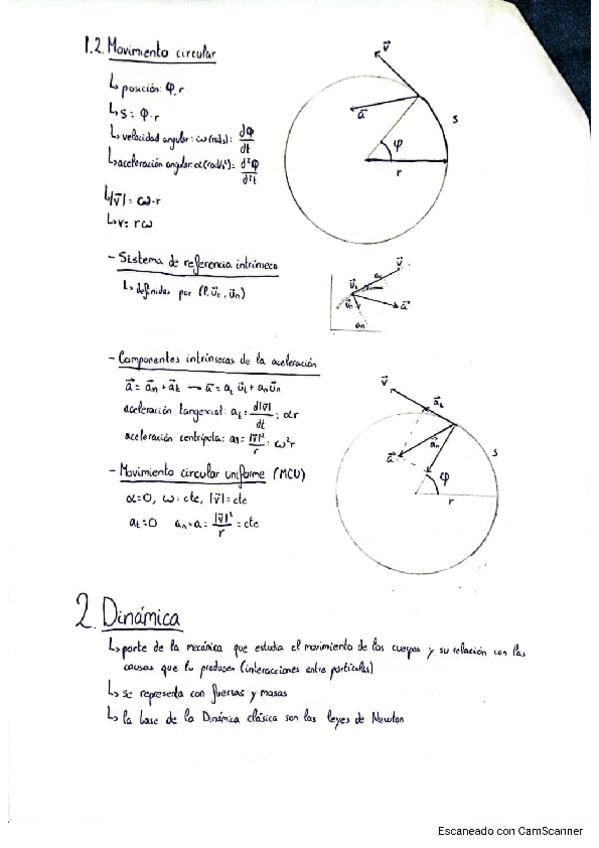 1.2. Movimiento circular
↳ posición: φ·r
↳ s = φ·r
↳ velocidad angular: ω(rad/s): dφ/dt
↳ aceleración angular: α(rad/s²): d²φ/d²t
↳ |v⃗| = ω·r
↳ v = rω
v⃗
a⃗
s
φ
r
- Sistema de referencia intrínseco
↳ definidas por (P, u⃗t, u⃗n)
v⃗
at
u⃗t
u⃗n
a⃗
an
- Componentes intrínsecas de la aceleración
a⃗ = a⃗n + a⃗t → a⃗ = at u⃗t + an u⃗n
aceleración tangencial: at = d|v⃗|/dt = αr
aceleración centrípeta: an = |v⃗|²/r = ω²r
- Movimiento circular uniforme (MCU)
α=0, ω=cte, |v⃗|=cte
at=0 an=a= |v⃗|²/r = cte
v⃗
a⃗t
a⃗n
a⃗
s
φ
r
2. Dinámica
↳ parte de la mecánica que estudia el movimiento de los cuerpos y su relación con las
causas que lo producen (interacciones entre partículas)
↳ se representa con fuerzas y masas
↳ la base de la Dinámica clásica son las leyes de Newton
Escaneado con CamScanner